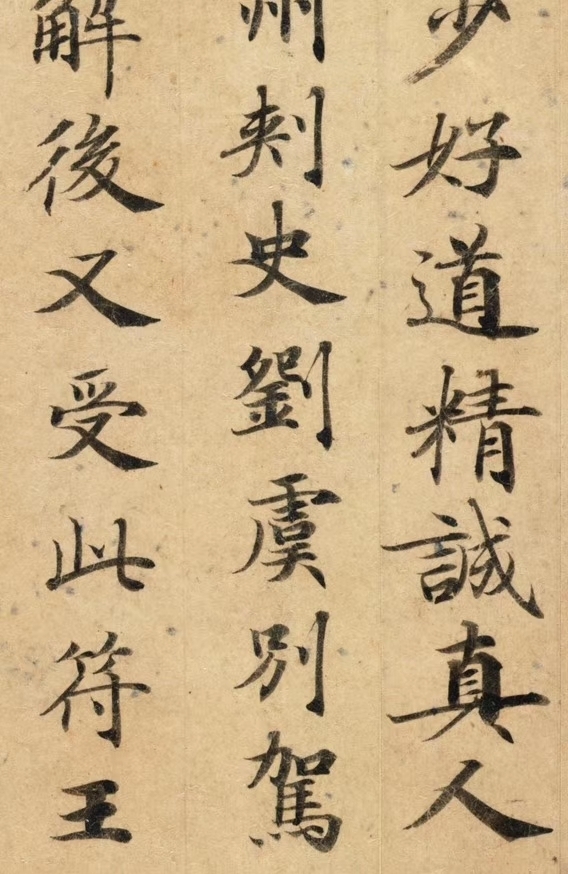 少好道精誠真人
州刾史劉虞別駕
解後又受此符王